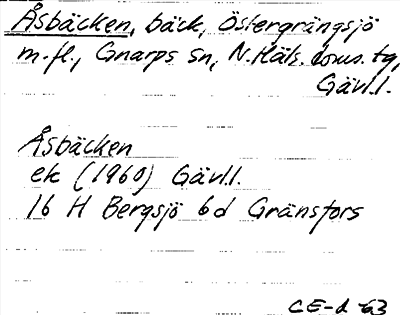 Åsbäcken, bäck, Östergrängsjö
m.fl., Gnarps sn, N.Häls. doms.tg,
Gävl.l.
Åsbäcken
ek (1960) Gävl.l.
16 H Bergsjö 6d Gränsfors
CE-d -63